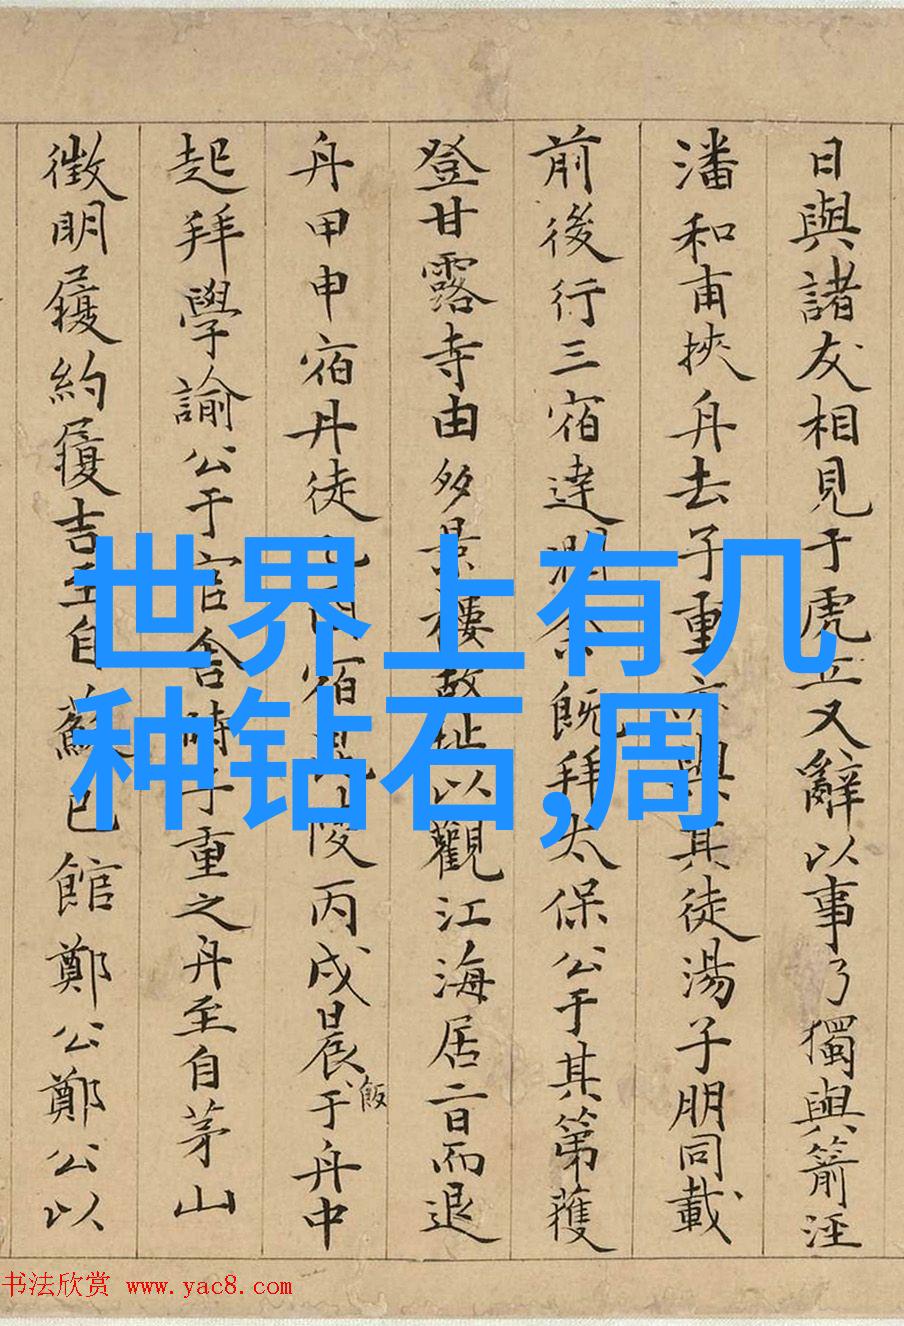 日與諸友相見于虎丘又辭以事乃獨與箭涇
潘和甫挾舟去子重亦與其徒湯子朋同載
前後行三宿達潤余既拜太保公于其第獲
登甘露寺由多景樓故址以觀江海居二日而退
舟甲申宿丹徒乙酉宿毘陵丙戌晨飯于舟中
起拜學諭公于官舍時子重之舟至自茅山
徵明履約履吉至自蘇已館鄭公鄭公以
世界上有几
种钻石,周
书法欣赏 www.yac8.com